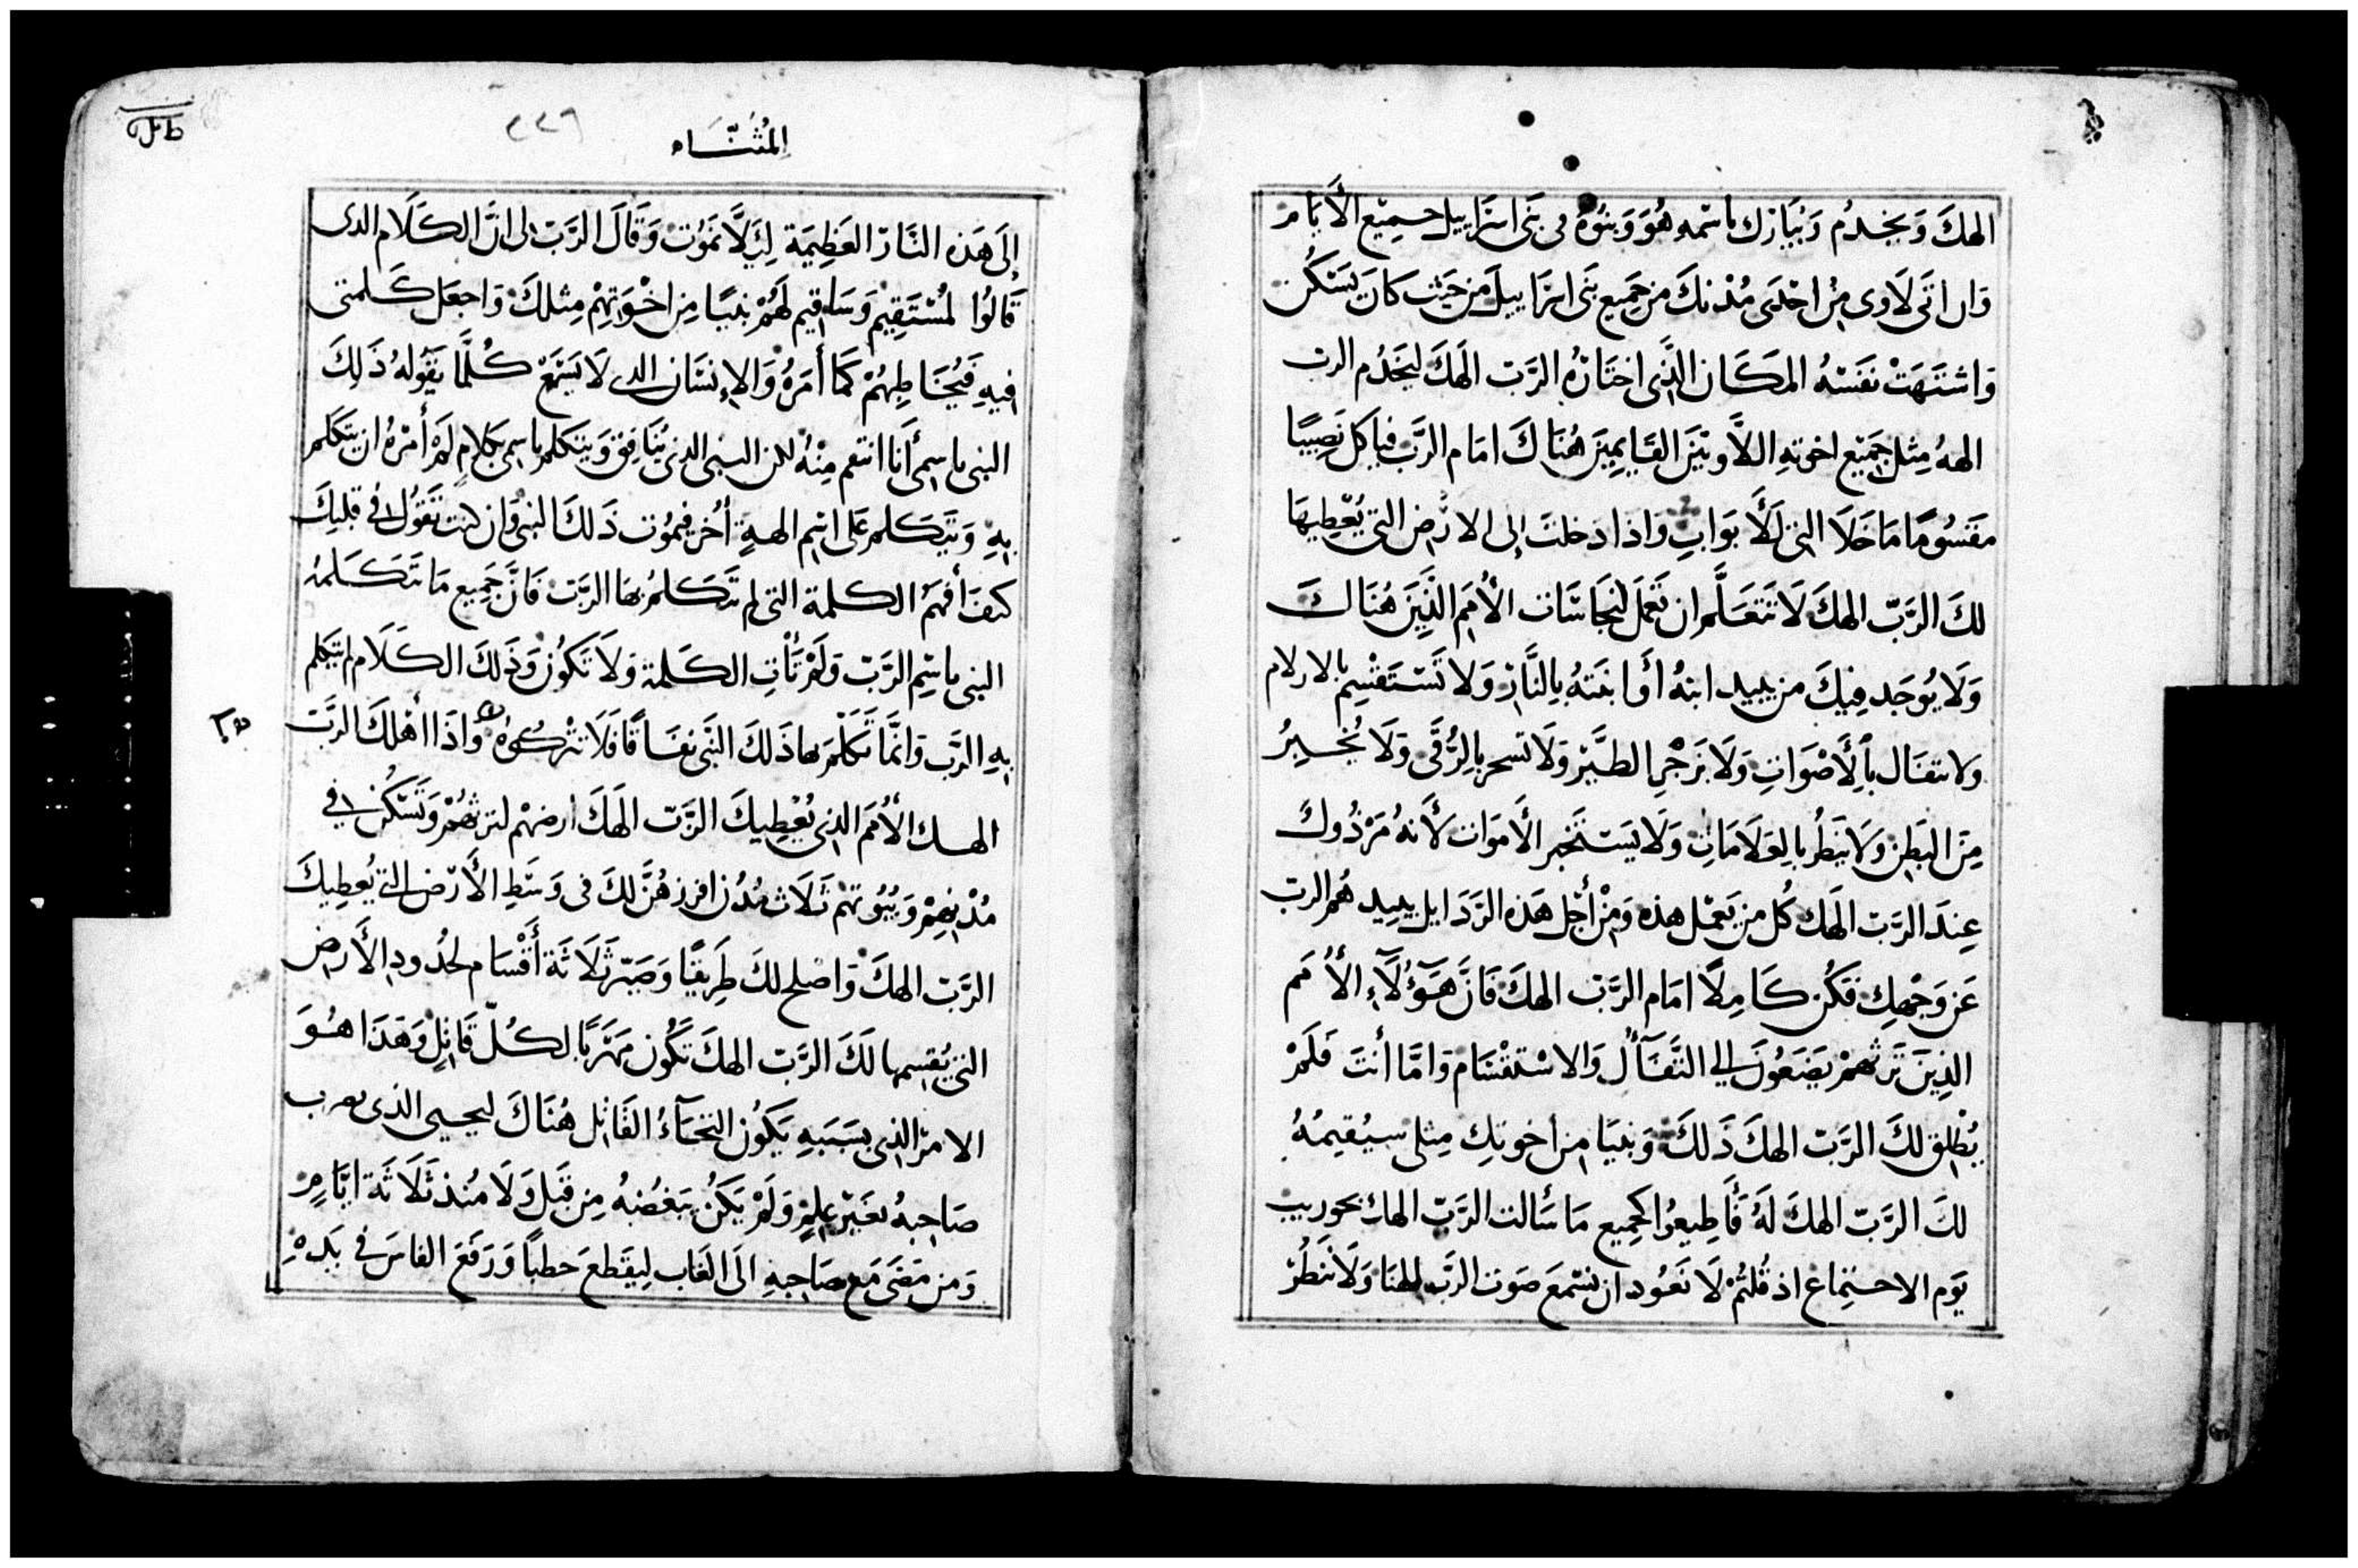 الهكَ وَيخدُم وَيُبَارك باسْمه هُوَ وَبنُوهُ فى بَنى اسرَاييل جميْع الأيَام
وَان اتَى لَاوى مِن احْدَى مُدنكَ من جَميع بَنى اسرَاييل من حَيْث كانَ يَسْكُن
وَاشتَهَتْ نفسْهُ المكَان الذَّى اختَارَهُ الرَّب الهَكَ ليَخدُم الرب
الههُ مِثل جَمَيْع اخوتهِ اللاَّويّين القَايمِينَ هُنَاكَ امَام الرَّب فياكل نَصِيبًا
مَقسُومًا مَا خَلَا التى لَلأَبوَابِ وَاذا دَخلتَ إلى الارْض التى يُعْطِيهَا
لكَ الرَّبّ الهكَ لَا تَتَعَلَّم ان تَعْمَل نجَاسَات الأُمَم الذَّينَ هُنَاكَ
وَلَا يُوجَد فِيكَ من يبيد ابنهُ أَو ابنَتهُ بِالنَّار وَلَا تَسْتَقسِم بالازلام
ولا تتفَال بالأَصْوَاتِ وَلَا بَزجْرِ الطَّيْر وَلَا تسحر بالرُقَى وَلَا يُخْبرُ
مِنَ البَطِن وَلَا يَنظُر بالعَلَامَاتِ وَلَا يَسْتَخبر الأَموَات لأَنهُ مَرْذُول
عِندَ الرَّبّ الهَك كُل من يَعمَل هذه وَمِنْ أَجْل هَذه الرَّذَايل يبيدهُم الرب
عَن وَجْهك فكُن كَامِلًا امَام الرَّب الهكَ فَانَّ هَؤُلَآءِ الأُمَم
الذِينَ تَرثهُمْ يَصَغُونَ الى التَّفَآؤُل وَالاسْتقْسَام وَامَّا أنتَ فَلَمْ
يُطْلِق لكَ الرَّبّ الهكَ ذَلكَ وَنبيًا من أخوتكِ مِثلى سيُقيمُهُ
لكَ الرَّبّ الهكَ لَهُ فَأَطِيعُوا كجميع مَا سَألت الرَّبّ الهك بحوريب
يَوم الاجتماع اذ قُلتُمْ لَا نَعُود ان نسْمَعَ صَوت الرَّب الهنَا وَلَا نَنظُرْ
المُثنَّاه
٢٢٦
إلَى هَذه النَّارّ العَظِيمَة لكَيلَّا نَمُوْت وَقَالَ الرَّب لى انَّ الكَلَام الدى
قَالُوا لمُسْتَقِيم وَسَاقيم لَهُمْ نبيًا مِن اخْوَتِهِمْ مِثلكَ وَاجعَل كَلمتى
فيهِ فَيُخَاطِبهُمْ كَمَا أَمَرَهُ وَالإنسَان الدى لَا يَسْمَعْ كُلَّمَا يَقُولهُ ذَلِكَ
النبى باسِمى أَنَا انتقم مِنْهُ لكن النبى الذى يُنَافِق وَيتكلم باسمى بكلامٍ لَمْ أَمْرهُ ان يتَكَلم
بهِ وَيَتَكلم عَلى اسْم الهةٍ أُخر فيمُوت ذَلكَ النبى وَان كنت تقوُل فى قلبكَ
كيفَ أَفهَم الكلمة التى لم يتَكَلمُ بهَا الرَّبّ فَانَّ جَمِيع مَا يَتكَلمهُ
النبى باسِم الرَّبّ وَلَمْ تَأتِ الكَلمة وَلَا تَكوُن وَذَلكَ الكَلَام لم يتَكلم
بهِ الرَّب وَانَّمَا تَكَلَّمَ بهَا ذَلكَ النَّبى نفَاقًا فَلَا تتركوُهُ وَاذَا أَهْلكَ الرَّبّ
الهك الأُمَم الذى يُعْطِيكَ الرَّبّ الهَكَ أرضهُم لترثهُمْ وَتَسْكُن فى
مُدْنِهِمْ وَبيُوتهُم ثَلَاث مُدُن افرز هُنَّ لكَ فى وَسَطِ الأَرْض التى يُعطِيكَ
الرَّبّ الهكَ وَاصلح لكَ طَرِيقًا وَصَيّر ثَلَاثَة أَقْسَام لحُدُود الأَرض
التى يُقسمها لَكَ الرَّبّ الهكَ تَكُون مَهرَبًا لكُلّ قَاتِلٍ وَهَذَا هُوَ
الامر الذى بسَبَبهِ يَكُون التجَآءُ القَاتِل هُنَاكَ ليحيى الذى يضرب
صَاحِبهُ بغَيْر عِلمٍ وَلَمْ يَكُن يَبغُضهُ مِن قبَل وَلَا مُنذ ثَلَاثَة ايَّامٍ
وَمن مَضَى مَع صَاحِبهِ الَى الغَاب لِيَقطَعَ حَطبًا وَرَفَعَ الفاسَ فى يَدهِ